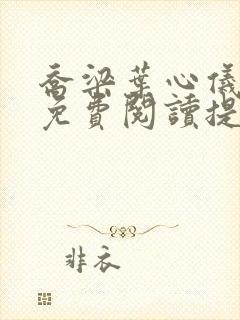 喬梁葉心儀
免費閱讀提
非衣